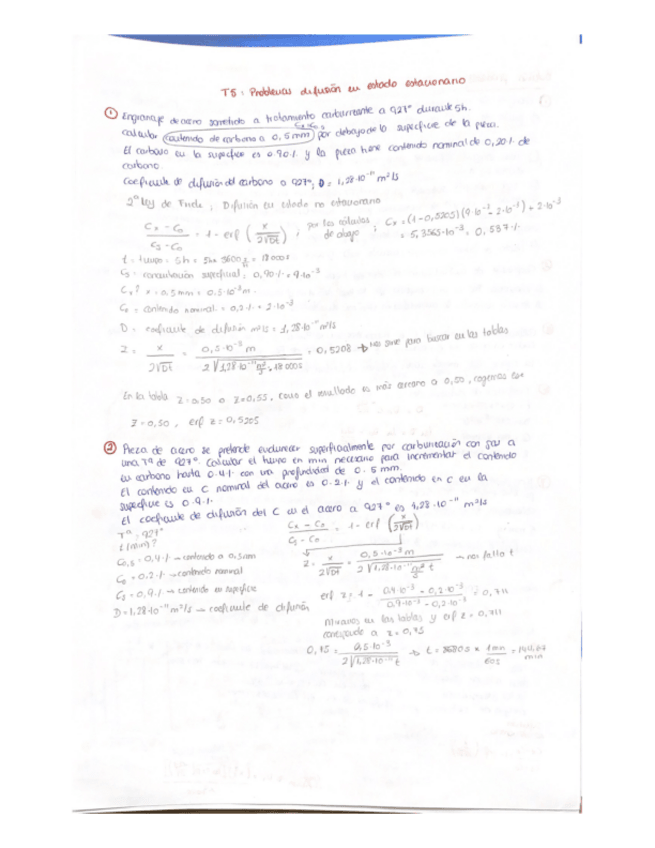 T5: Problemas difusión en estado estacionario
① Engranaje de acero sometido a tratamiento carburante a 927º durante 5h.
calcular contenido de carbono a 0,5mm por debajo de la superficie de la pieza.
El carbono en la superficie es 0.90% y la pieza tiene contenido nominal de 0,20% de
carbono.
Coeficiente de difusión del carbono a 927º, D = 1,28·10⁻¹¹ m²/s
2ª Ley de Fick; Difusión en estado no estacionario
Cx - C0 / Cs - C0 = 1 - erf ( x / 2√Dt ) ; por los cálculos de abajo ; Cx = (1-0,5205)(9·10⁻³ - 2·10⁻³) + 2·10⁻³
= 5,3565·10⁻³ = 0,537%
t = tiempo = 5h = 18000s
Cs = concentración superficial = 0,90% = 9·10⁻³
Cx? x = 0,5mm = 0,5·10⁻³ m.
C0 = contenido nominal = 0,2% = 2·10⁻³
D = coeficiente de difusión m²/s = 1,28·10⁻¹¹ m²/s
Z = x / 2√Dt = 0,5·10⁻³ m / 2√1,28·10⁻¹¹ m²/s · 18000s = 0,5208 → Nos sirve para buscar en las tablas
En la tabla z=0,50 o z=0,55, como el resultado es más cercano a 0,50, cogemos
z=0,50, erf z = 0,5205
② Pieza de acero se pretende endurecer superficialmente por carburización con gas a
una Tª de 927º. Calcular el tiempo en min necesario para incrementar el contenido
en carbono hasta 0.4% con una profundidad de 0.5mm.
El contenido en C nominal del acero es 0.2% y el contenido en C en la
superficie es 0.9%.
El coeficiente de difusión del C en el acero a 927º es 1,28·10⁻¹¹ m²/s
Tª = 927º
t (min)?
C0,5 = 0,4% → contenido a 0,5mm
C0 = 0.2% → contenido nominal
Cs = 0,9% → contenido en superficie
D = 1,28·10⁻¹¹ m²/s → coeficiente de difusión
Cx - C0 / Cs - C0 = 1 - erf ( x / 2√Dt )
z = x / 2√Dt = 0,5·10⁻³ m / 2√1,28·10⁻¹¹ m²/s t → nos falta t
erf z = 1 - 0.4·10⁻³ - 0,2·10⁻³ / 0.9·10⁻³ - 0,2·10⁻³ = 0,711
Miramos en las tablas y erf z = 0,711
corresponde a z = 0,75
0,75 = 0,5·10⁻³ / 2√1,28·10⁻¹¹ t → t = 8680s × 1min / 60s = 144,67 min